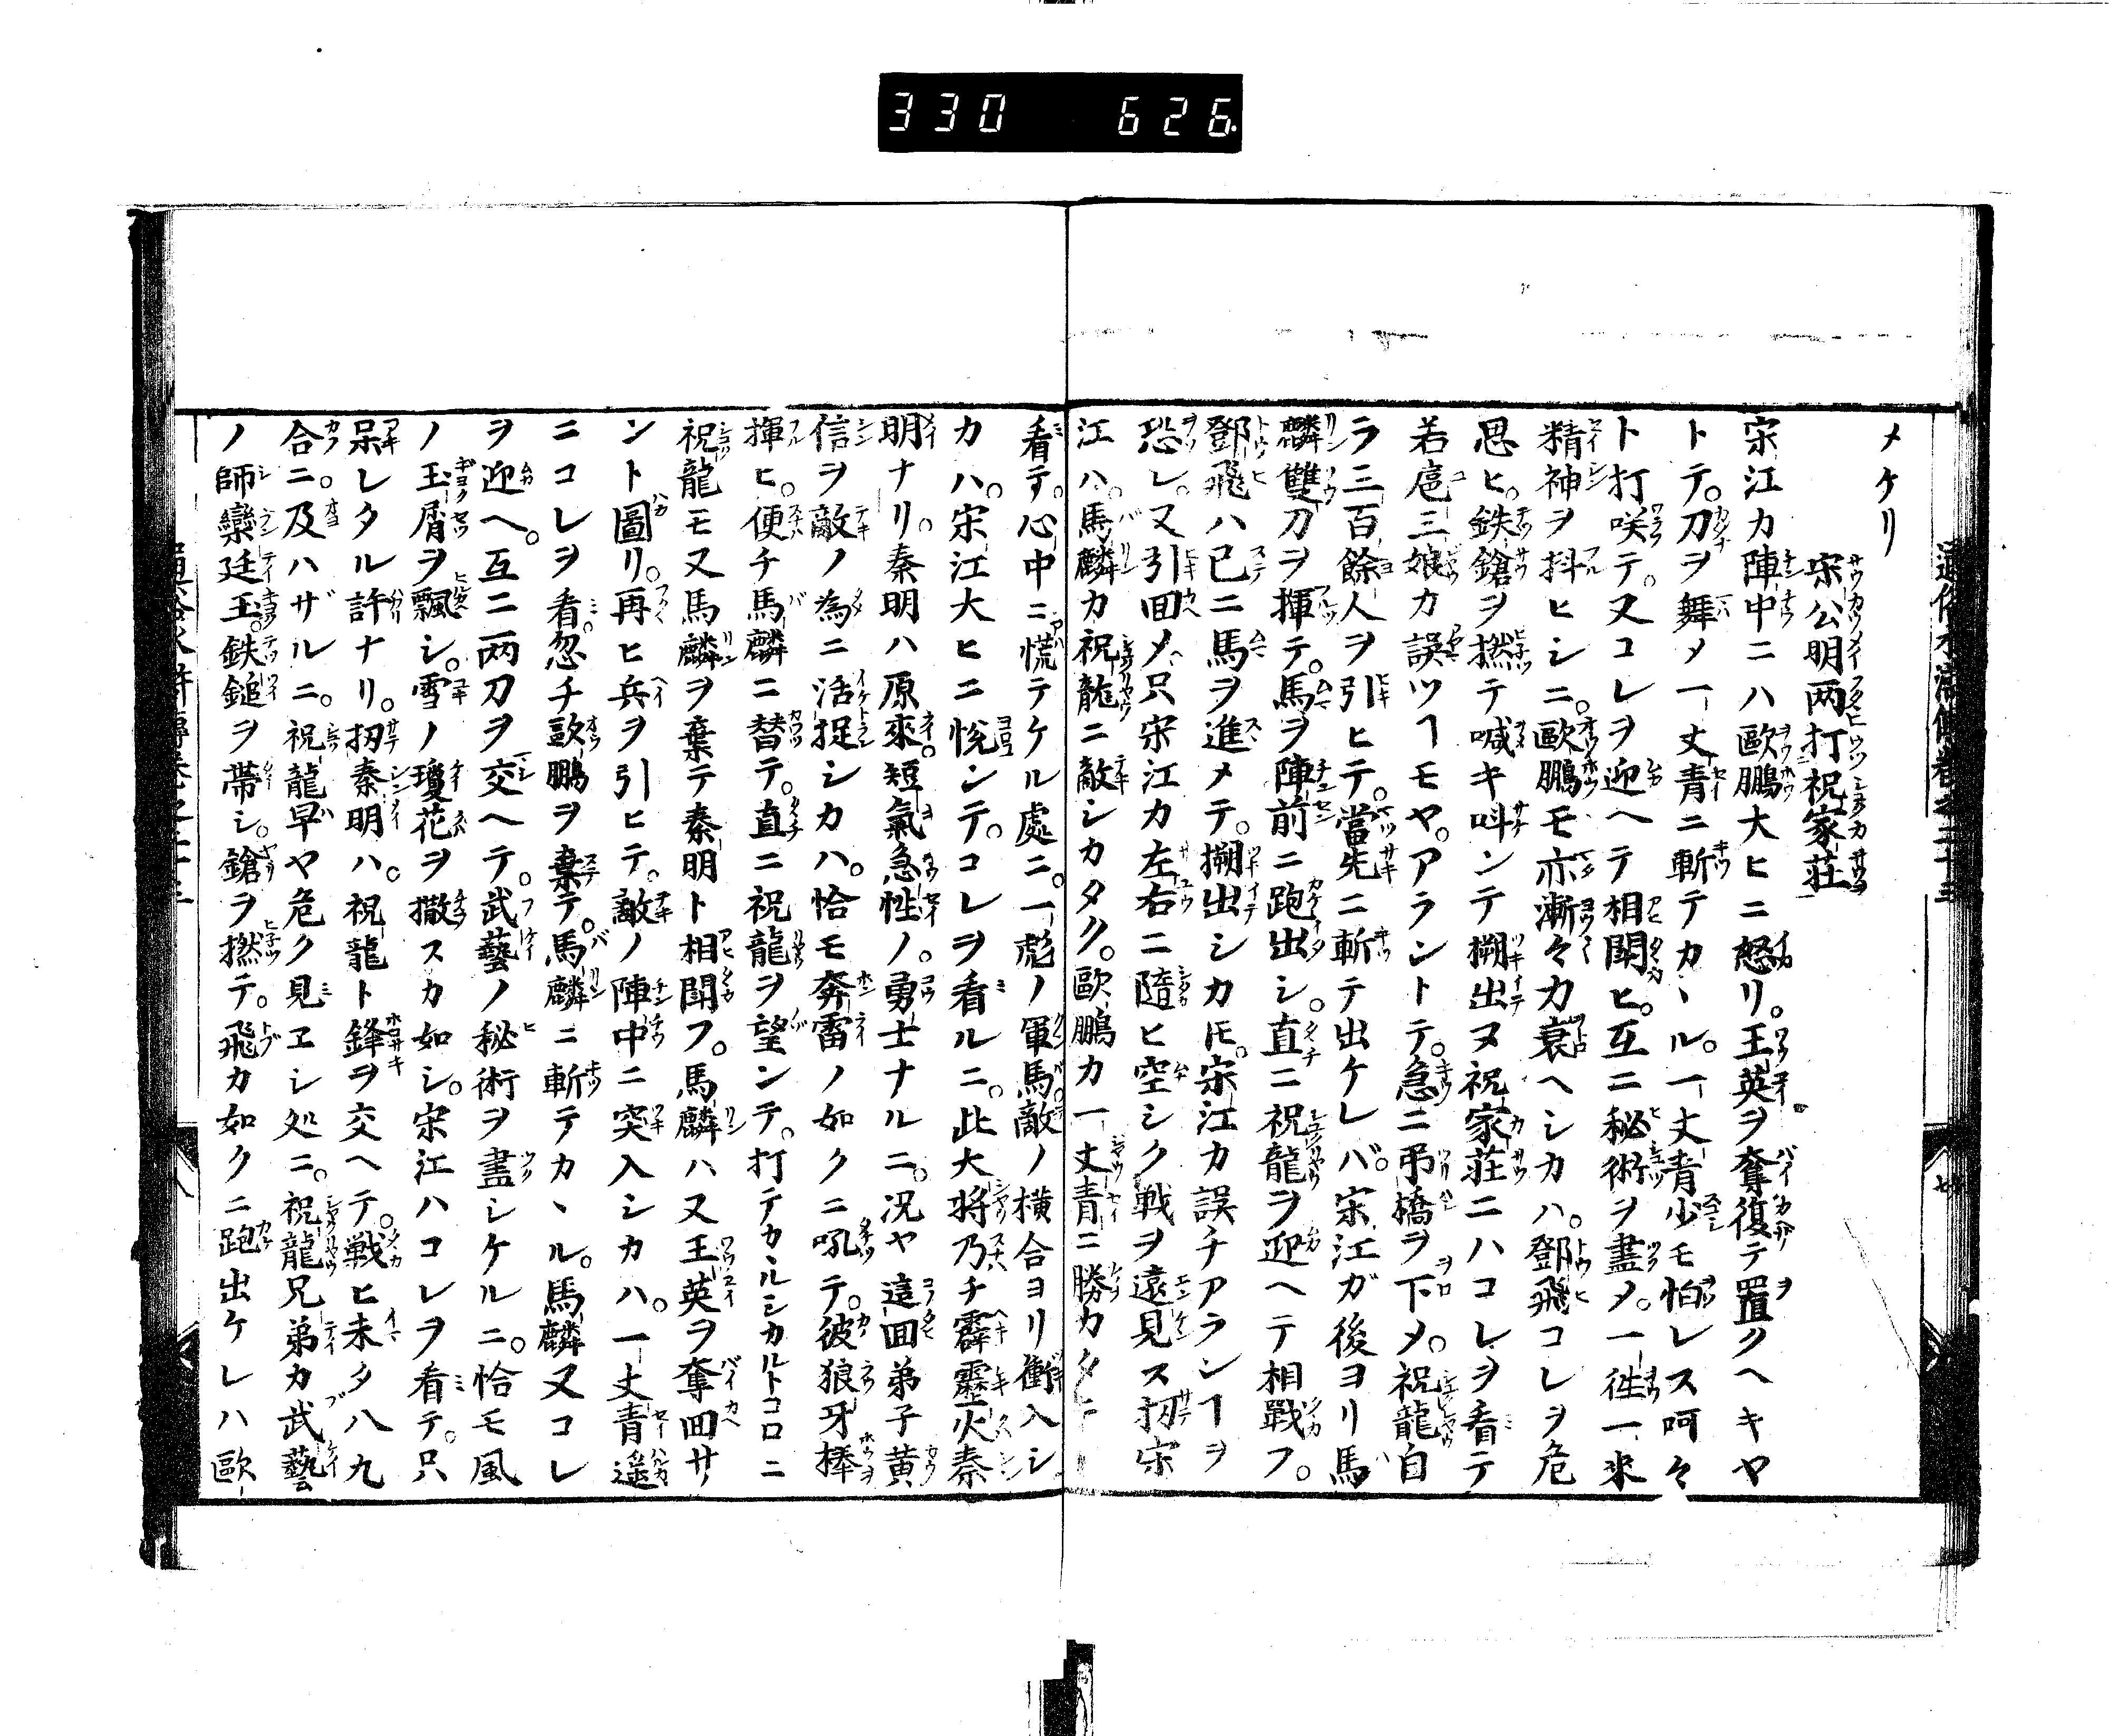 330 626
通俗水滸傳卷之二十三
メケリ
宋公明两打祝家莊
宋江カ陣中ニハ歐鵬大ヒニ怒リ。王英ヲ奪復テ置クヘキヤ
トテ。刀ヲ舞メ一丈青ニ斬テカヽル。一丈青少モ怕レス呵々
ト打咲テ。又コレヲ迎ヘテ相鬪ヒ。互ニ秘術ヲ盡メ。一徃一来
精神ヲ抖ヒシニ。歐鵬モ亦漸々力衰ヘシカハ。鄧飛コレヲ危
思ヒ。鉄鎗ヲ撚テ喊キ呌ンテ搠出ヌ祝家莊ニハコレヲ看テ
若扈三娘カ誤ツヿモヤ。アラントテ。急ニ吊橋ヲ下メ。祝龍自
ラ三百餘人ヲ引ヒテ。當先ニ斬テ出ケレバ。宋江ガ後ヨリ馬
麟雙刀ヲ揮テ。馬ヲ陣前ニ跑出シ。直ニ祝龍ヲ迎ヘテ相戰フ。
鄧飛ハ已ニ馬ヲ進メテ。搠出シカ𪜈。宋江カ誤チアランヿヲ
恐レ。又引回メ只宋江カ左右ニ隨ヒ空シク戦ヲ遠見ス扨宋
江ハ。馬麟カ祝龍ニ敵シカタク。歐鵬カ一丈青ニ勝カタキ
看テ。心中ニ慌テケル處ニ。一彪ノ軍馬。敵ノ横合ヨリ衝入シ
カハ。宋江大ヒニ悅ンテ。コレヲ看ルニ。此大将乃チ霹靂火秦
明ナリ。秦明ハ原來。短氣急性ノ。勇士ナルニ。况ヤ這回弟子黄
信ヲ敵ノ為ニ活捉シカハ。恰モ奔雷ノ如クニ吼テ。彼狼牙棒
揮ヒ。便チ馬麟ニ替テ。直ニ祝龍ヲ望ンテ。打テカヽルシカルトコロニ
祝龍モ又馬麟ヲ棄テ秦明ト相鬪フ。馬麟ハ又王英ヲ奪回サ
ント圖リ。再ヒ兵ヲ引ヒテ。敵ノ陣中ニ突入シカハ。一丈青遥
ニコレヲ看。忽チ歐鵬ヲ棄テ。馬麟ニ斬テカヽル。馬麟又コレ
ヲ迎ヘ。互ニ两刀ヲ交ヘテ。武藝ノ秘術ヲ盡シケルニ。恰モ風
ノ玉屑ヲ飄シ。雪ノ瓊花ヲ撒スカ如シ。宋江ハコレヲ看テ。只
呆レタル許ナリ。扨秦明ハ。祝龍ト鋒ヲ交ヘテ。戦ヒ未タ八九
合ニ。及ハザルニ。祝龍早ヤ危ク見ヱシ処ニ。祝龍兄弟カ武藝
ノ師欒廷玉。鉄鎚ヲ帯シ。鎗ヲ撚テ。飛カ如クニ跑出ケレハ歐